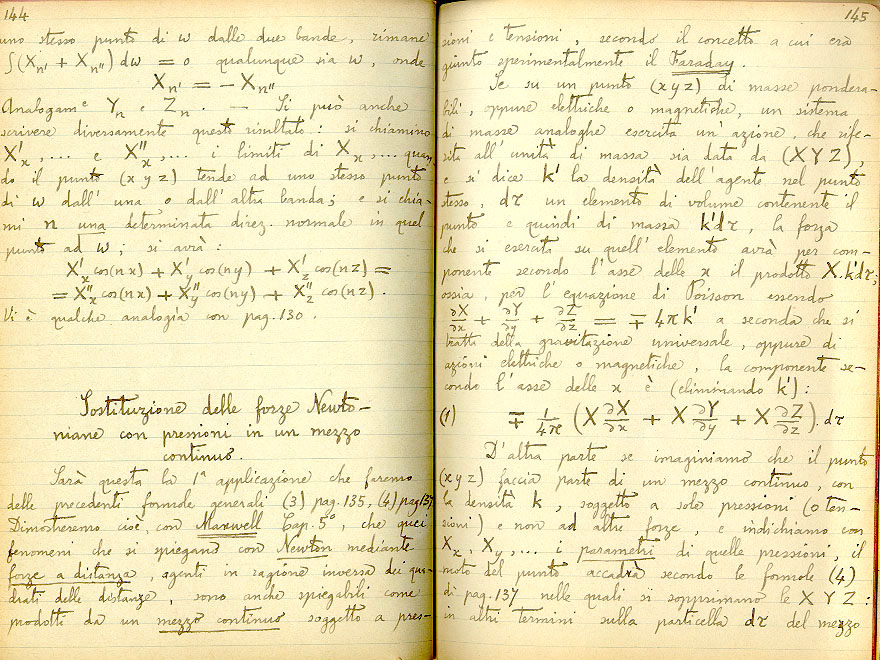 144
uno stesso punto di ω dalle due bande, rimane
∫(Xn' + Xn'') dω = 0 qualunque sia ω, onde
Xn' = - Xn''
Analogamᵉ Yn e Zn. — Si può anche
scrivere diversamente questo risultato: si chiamino
X'x, ... e X''x, ... i limiti di Xx, ... quan-
do il punto (x y z) tende ad uno stesso punto
di ω dall' una o dall' altra banda; e si chia-
mi n una determinata direz. normale in quel
punto ad ω; si avrà:
X'x cos(nx) + X'y cos(ny) + X'z cos(nz) =
= X''x cos(nx) + X''y cos(ny) + X''z cos(nz).
Vi è qualche analogia con pag. 130.
Sostituzione delle forze Newto-
niane con pressioni in un mezzo
continuo.
Sarà questa la 1ª applicazione che faremo
delle precedenti formole generali (3) pag. 135, (4) pag 137
Dimostreremo cioè, con Maxwell Cap. 5°, che quei
fenomeni che si spiegano con Newton mediante
forze a distanza, agenti in ragione inversa dei qua-
drati delle distanze, sono anche spiegabili come
prodotti da un mezzo continuo soggetto a pres-
145
sioni e tensioni, secondo il concetto a cui era
giunto sperimentalmente il Faraday.
Se su un punto (x y z) di masse pondera-
bili, oppure elettriche o magnetiche, un sistema
di masse analoghe esercita un'azione, che rife-
rita all'unità di massa sia data da (X Y Z),
e si dice k' la densità dell'agente nel punto
stesso, dτ un elemento di volume contenente il
punto e quindi di massa k'dτ, la forza
che si esercita su quell'elemento avrà per com-
ponente secondo l'asse delle x il prodotto X.k'dτ;
ossia, per l'equazione di Poisson essendo
∂X/∂x + ∂Y/∂y + ∂Z/∂z = ∓ 4πk' a seconda che si
tratti della gravitazione universale, oppure di
azioni elettriche o magnetiche, la componente se-
condo l'asse delle x è (eliminando k'):
(1) ∓ 1/4π (X ∂X/∂x + X ∂Y/∂y + X ∂Z/∂z). dτ
D'altra parte se imaginiamo che il punto
(x y z) faccia parte di un mezzo continuo, con
la densità k, soggetto a sole pressioni (o ten-
sioni) e non ad altre forze, e indichiamo con
Xx, Xy, ... i parametri di quelle pressioni, il
moto del punto accadrà secondo le formole (4)
di pag. 137 nelle quali si sopprimano le X Y Z:
in altri termini sulla particella dτ del mezzo